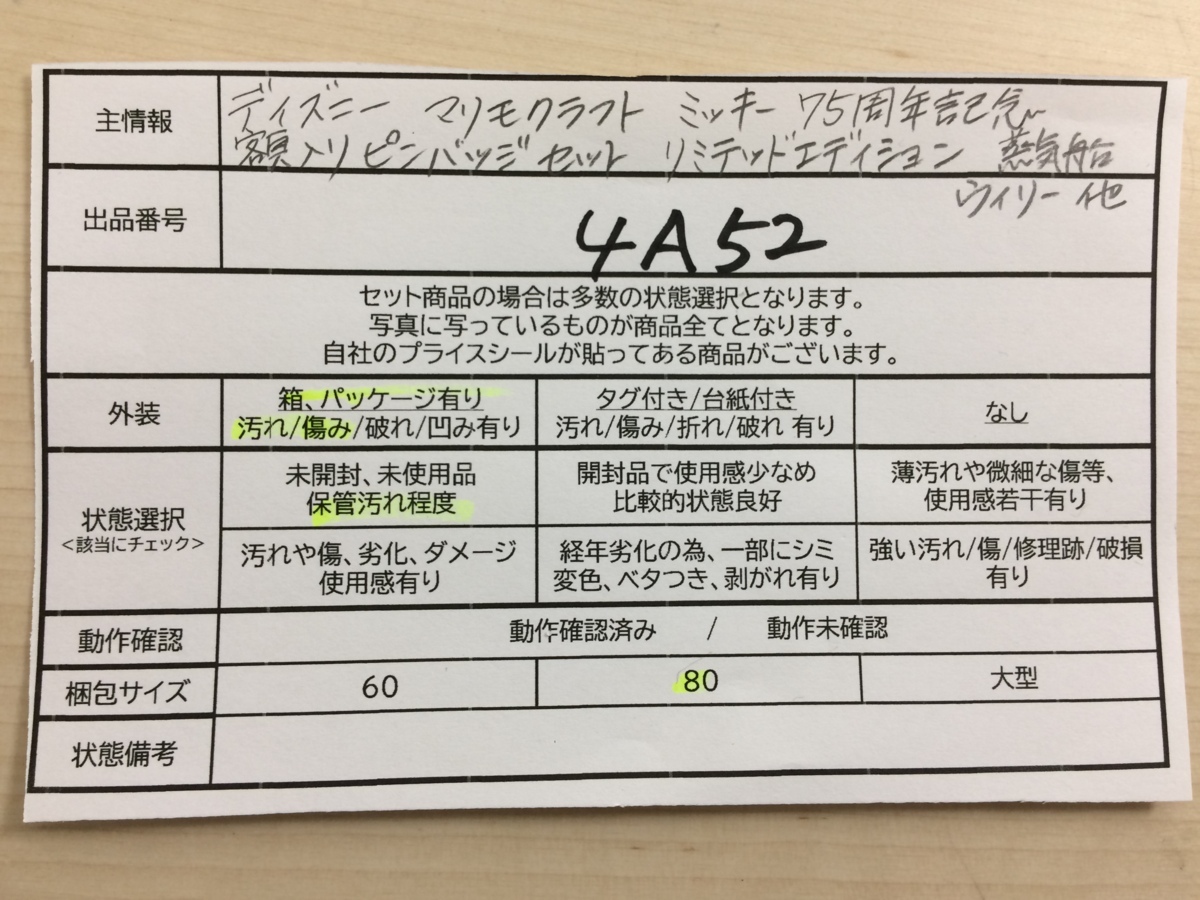 主情報
ディズニー マリモクラフト ミッキー 75周年記念
額入りピンバッジセット リミテッドエディション 蒸気船
ウィリー 他
出品番号
4A52
セット商品の場合は多数の状態選択となります。
写真に写っているものが商品全てとなります。
自社のプライスシールが貼ってある商品がございます。
外装
箱、パッケージ有り
汚れ/傷み/破れ/凹み有り
タグ付き/台紙付き
汚れ/傷み/折れ/破れ 有り
なし
状態選択
<該当にチェック>
未開封、未使用品
保管汚れ程度
開封品で使用感少なめ
比較的状態良好
薄汚れや微細な傷等、
使用感若干有り
汚れや傷、劣化、ダメージ
使用感有り
経年劣化の為、一部にシミ
変色、ベタつき、剥がれ有り
強い汚れ/傷/修理跡/破損
有り
動作確認
動作確認済み / 動作未確認
梱包サイズ
60
80
大型
状態備考